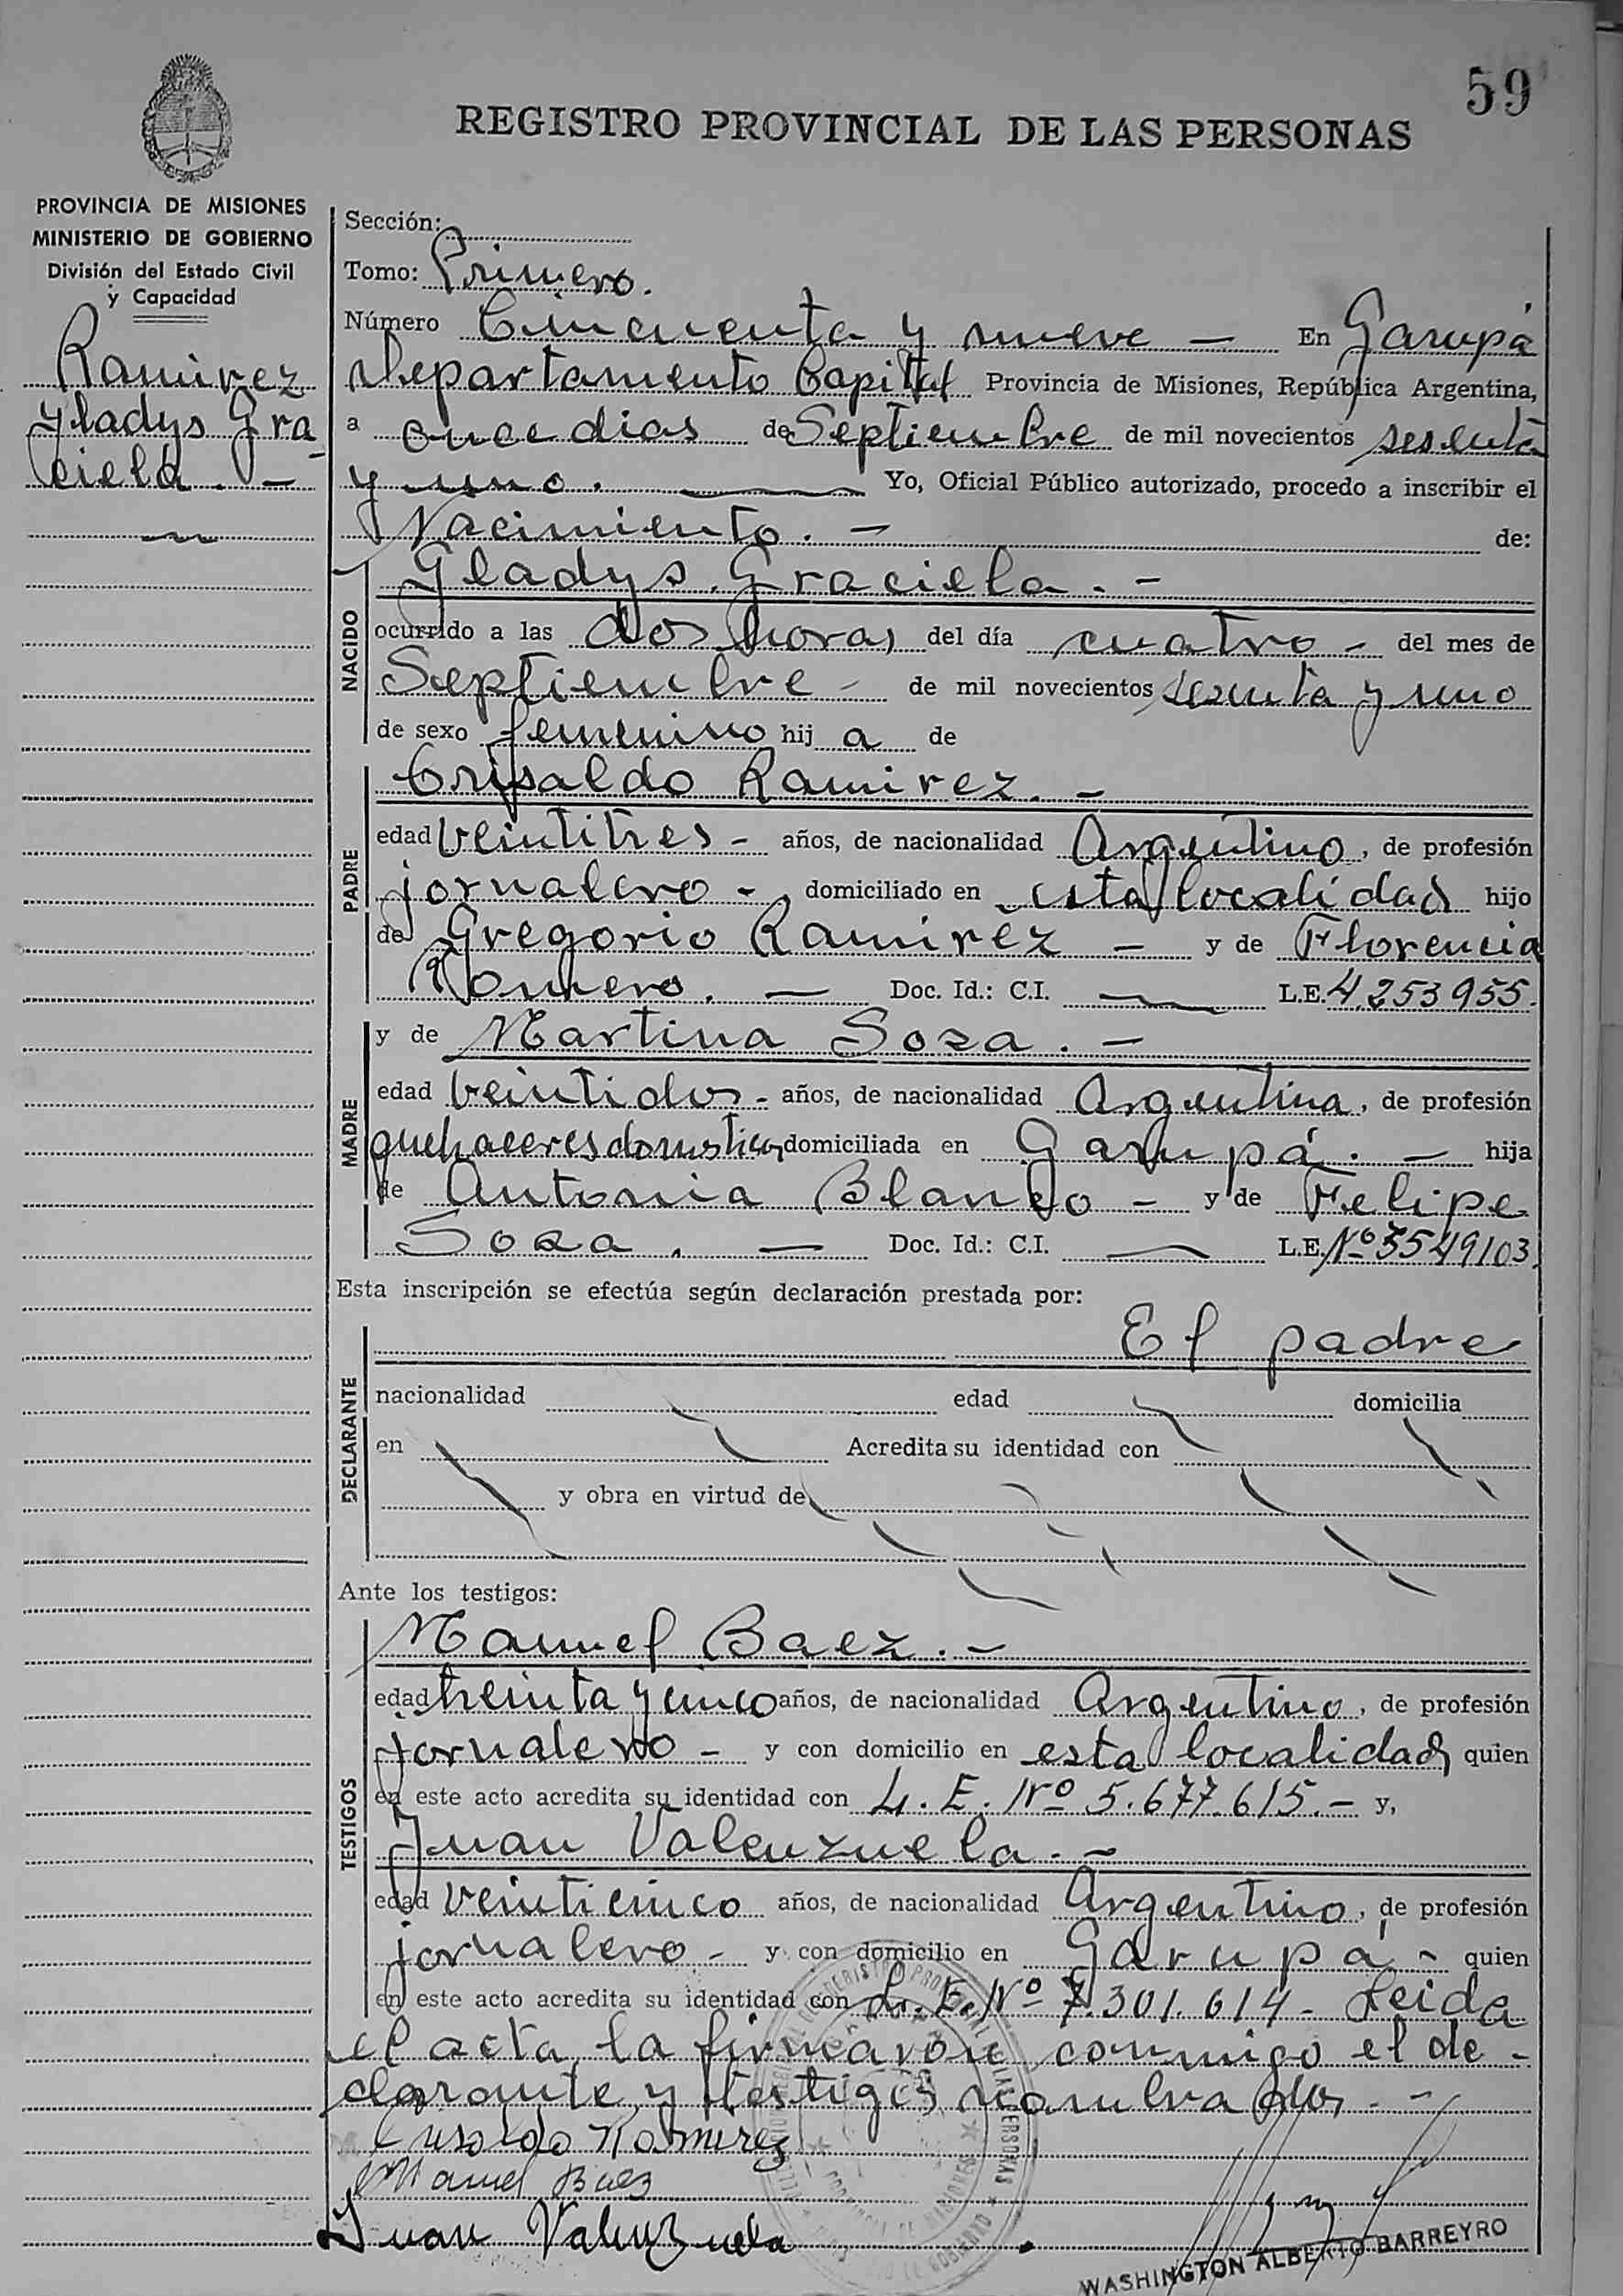 59
REGISTRO PROVINCIAL DE LAS PERSONAS
PROVINCIA DE MISIONES
MINISTERIO DE GOBIERNO
División del Estado Civil
y Capacidad
Ramirez
Gladys Gra
ciela. -
Sección:
Tomo: Primero.
Número Cincuenta y nueve - En Garupá
Departamento Capital Provincia de Misiones, República Argentina,
a once dias de Septiembre de mil novecientos sesenta
y uno. Yo, Oficial Público autorizado, procedo a inscribir el
Nacimiento. - de:
Gladys Graciela. -
NACIDO
ocurrido a las dos horas del día cuatro - del mes de
Septiembre - de mil novecientos sesenta y uno
de sexo femenino hij a de
Crisaldo Ramirez. -
PADRE
edad veintitres - años, de nacionalidad Argentino, de profesión
jornalero - domiciliado en esta localidad hijo
de Gregorio Ramirez - y de Florencia
Romero. - Doc. Id.: C.I. — L.E. 4.253955.
y de Martina Sosa. -
MADRE
edad veintidos - años, de nacionalidad Argentina, de profesión
quehaceres domesticos domiciliada en Garupá. - hija
de Antonia Blanco - y de Felipe
Sosa. - Doc. Id.: C.I. — L.E. Nº 3549103
Esta inscripción se efectúa según declaración prestada por:
El padre
DECLARANTE
nacionalidad edad domicilia
en Acredita su identidad con
y obra en virtud de
Ante los testigos:
Manuel Baez. -
TESTIGOS
edad treinta y cinco años, de nacionalidad Argentino, de profesión
jornalero - y con domicilio en esta localidad quien
en este acto acredita su identidad con L. E. Nº 5.677.615. - y,
Juan Valenzuela. -
edad veinticinco años, de nacionalidad Argentino, de profesión
jornalero. - y con domicilio en Garupá - quien
en este acto acredita su identidad con L. E. Nº 7.301.614 - Leida
el acta, la firmaron conmigo el de -
clarante y testigos nombrados. -
Crisaldo Ramirez
Manuel Baez
Juan Valenzuela
WASHINGTON ALBERTO BARREYRO